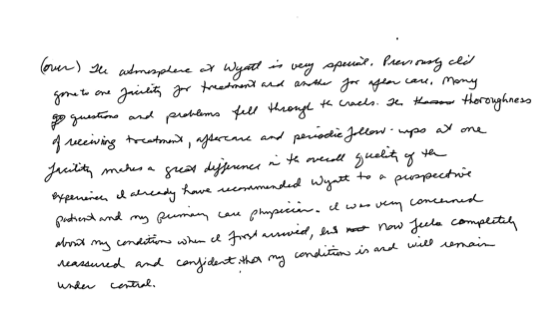 (over) The atmosphere at Wyatt is very special. Previously I'd
gone to one facility for treatment and another for after care. Many
questions and problems fell through the cracks. The thoroughness
of receiving treatment, aftercare and periodic follow-ups at one
facility makes a great difference in the overall quality of the
experience. I already have recommended Wyatt to a prospective
patient and my primary care physician. I was very concerned
about my condition when I first arrived, but now feel completely
reassured and confident that my condition is and will remain
under control.